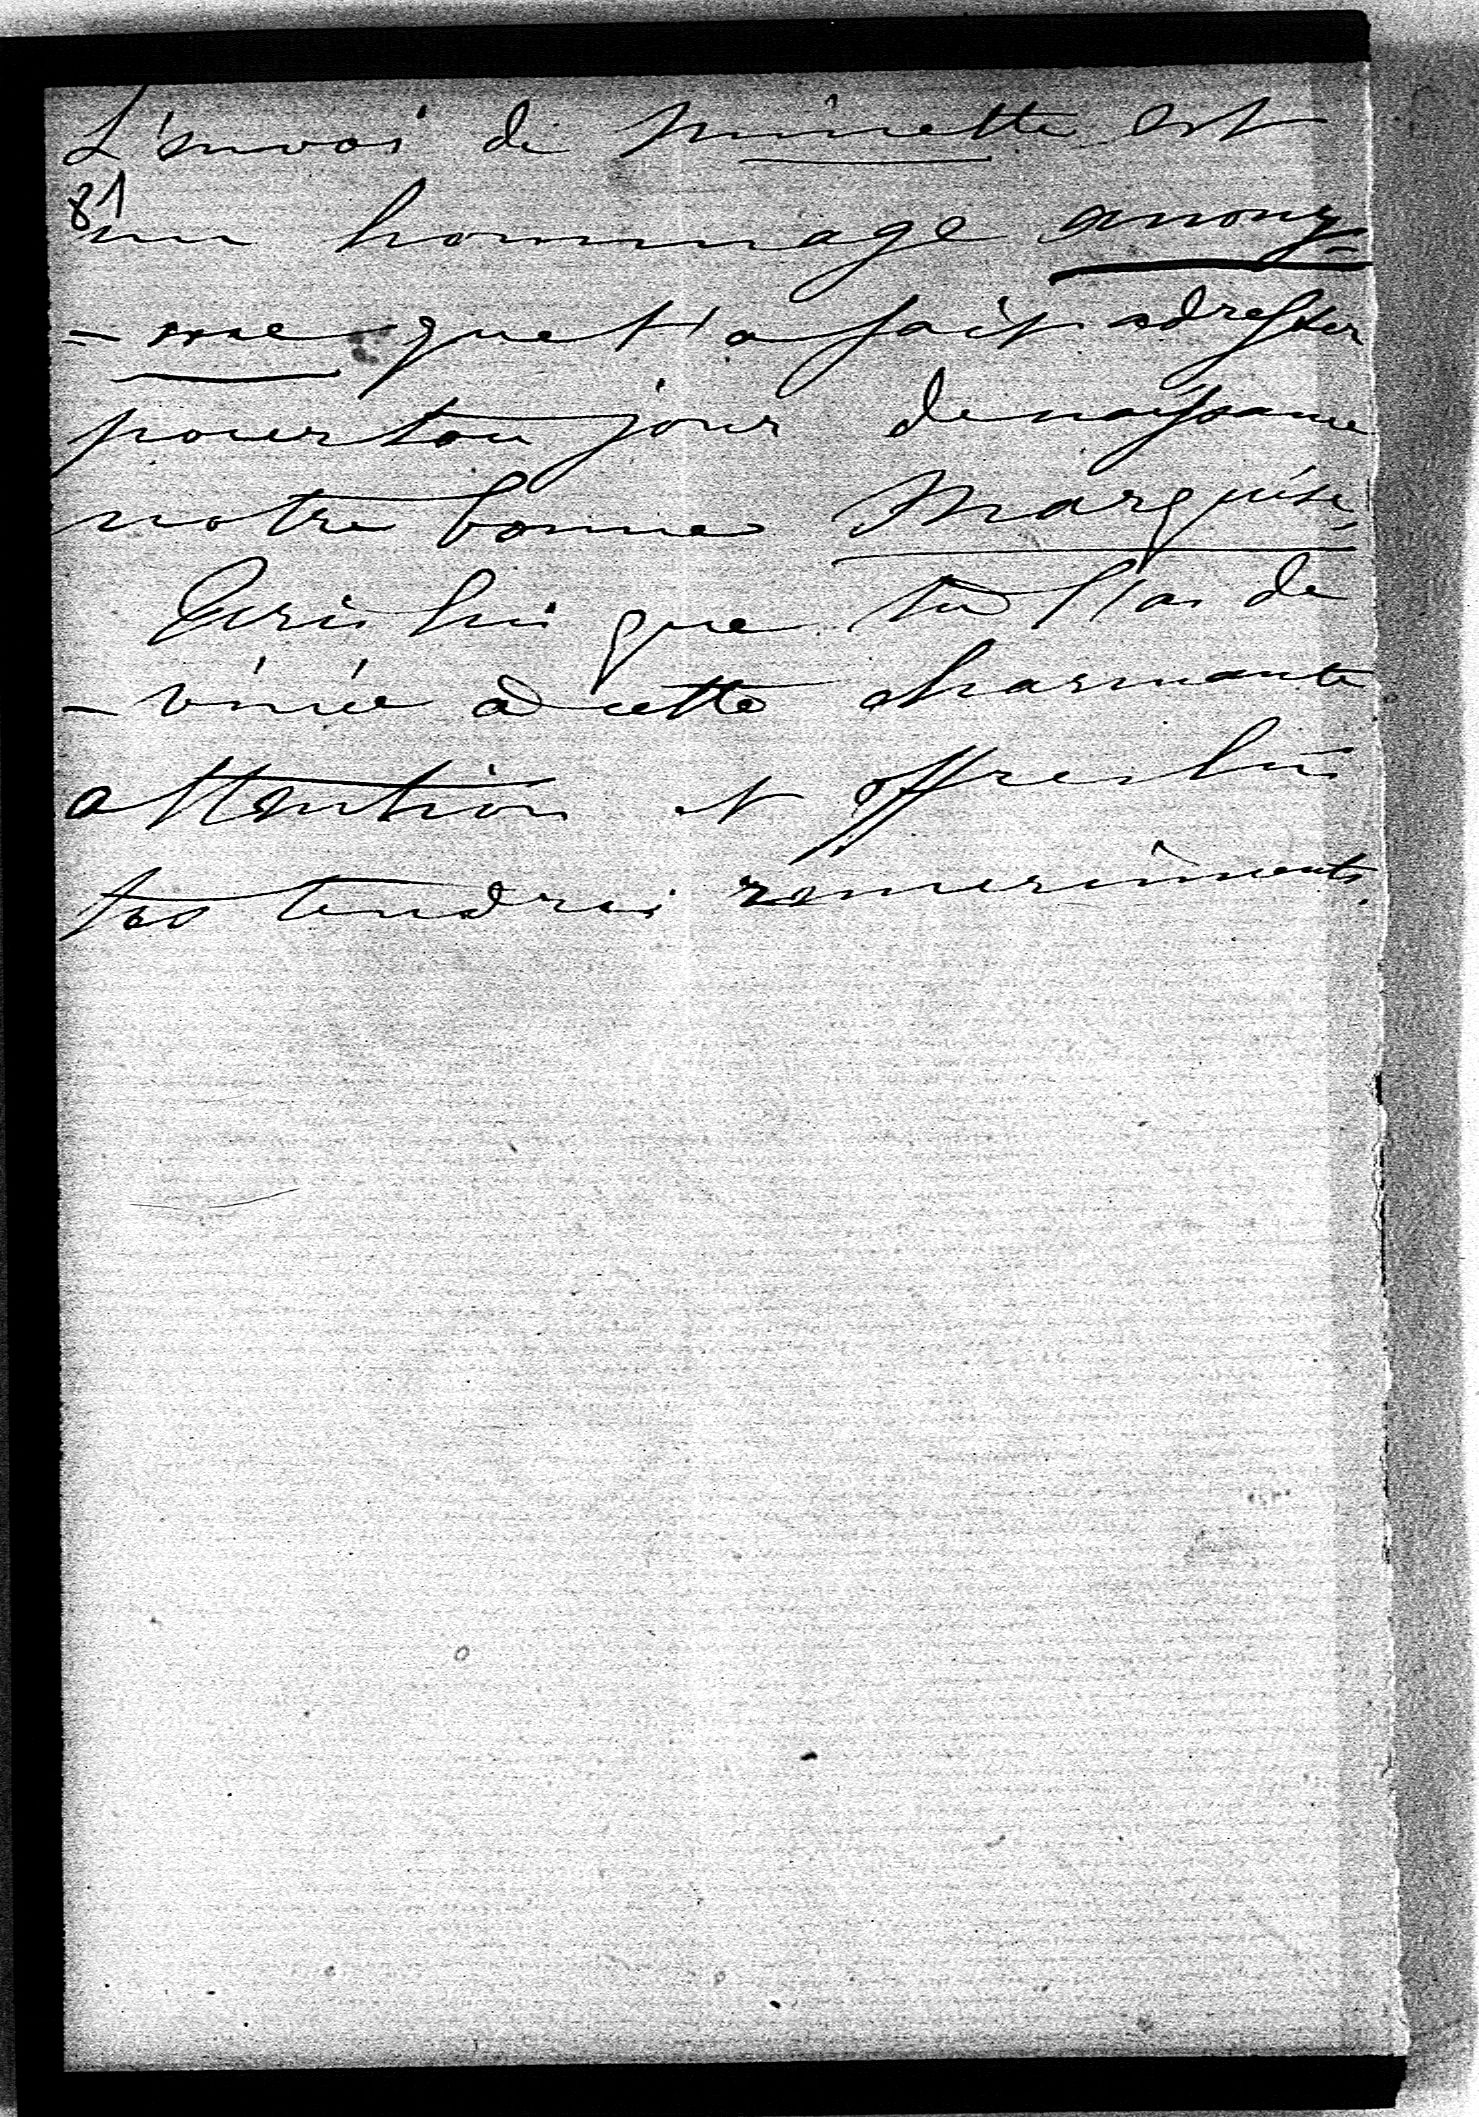 L'envoi de Minette est
81
un hommage anony=
- me que t'a fait adresser
pour ton jour de naissance
notre bonne Marquise,
Ecris lui que tu l'as de
- vinée à cette charmante
attention et offres lui
tes tendres remerciments.